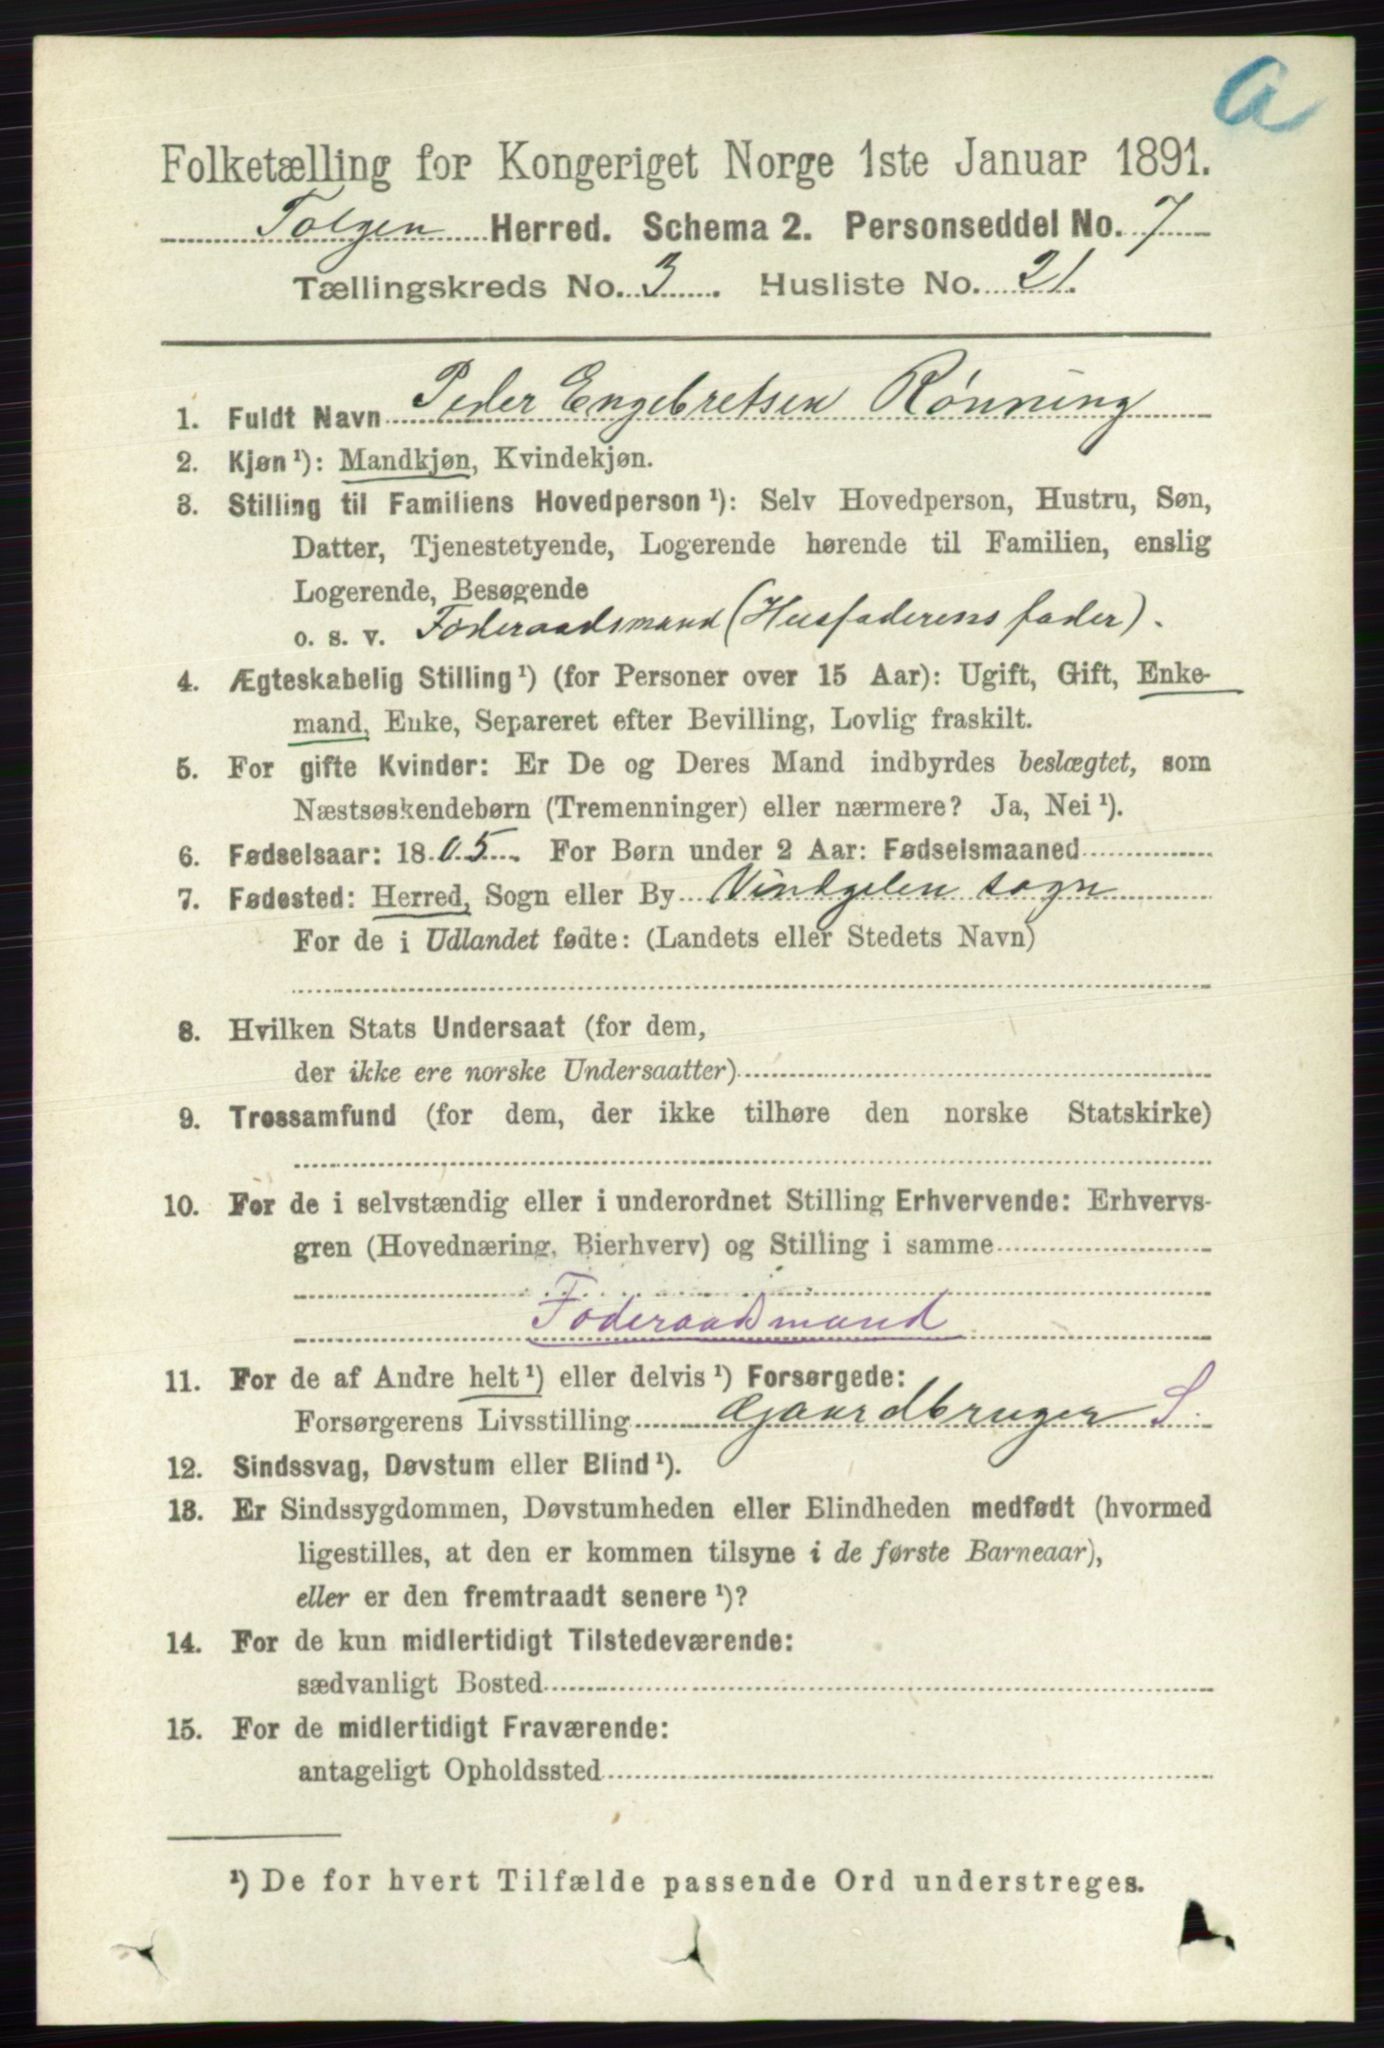 a
Folketælling for Kongeriget Norge 1ste Januar 1891.
Tolgen Herred. Schema 2. Personseddel No. 7
Tællingskreds No. 3. Husliste No. 21.
1. Fuldt Navn Peder Engebretsen Rønning
2. Kjøn ¹): Mandkjøn, Kvindekjøn.
3. Stilling til Familiens Hovedperson ¹): Selv Hovedperson, Hustru, Søn,
Datter, Tjenestetyende, Logerende hørende til Familien, enslig
Logerende, Besøgende
o. s. v. Føderaadsmand (Husfaderens fader).
4. Ægteskabelig Stilling ¹) (for Personer over 15 Aar): Ugift, Gift, Enke-
mand, Enke, Separeret efter Bevilling, Lovlig fraskilt.
5. For gifte Kvinder: Er De og Deres Mand indbyrdes beslægtet, som
Næstsøskendebørn (Tremenninger) eller nærmere? Ja, Nei ¹).
6. Fødselsaar: 1805. For Børn under 2 Aar: Fødselsmaaned
7. Fødested: Herred, Sogn eller By Vindgelen sogn
For de i Udlandet fødte: (Landets eller Stedets Navn)
8. Hvilken Stats Undersaat (for dem,
der ikke ere norske Undersaatter)
9. Trossamfund (for dem, der ikke tilhøre den norske Statskirke)
10. For de i selvstændig eller i underordnet Stilling Erhvervende: Erhvervs-
gren (Hovednæring, Bierhverv) og Stilling i samme
Føderaadsmand
11. For de af Andre helt ¹) eller delvis ¹) Forsørgede:
Forsørgerens Livsstilling Gaardbruger S.
12. Sindssvag, Døvstum eller Blind ¹).
13. Er Sindssygdommen, Døvstumheden eller Blindheden medfødt (hvormed
ligestilles, at den er kommen tilsyne i de første Barneaar),
eller er den fremtraadt senere ¹)?
14. For de kun midlertidigt Tilstedeværende:
sædvanligt Bosted
15. For de midlertidigt Fraværende:
antageligt Opholdssted
¹) De for hvert Tilfælde passende Ord understreges.